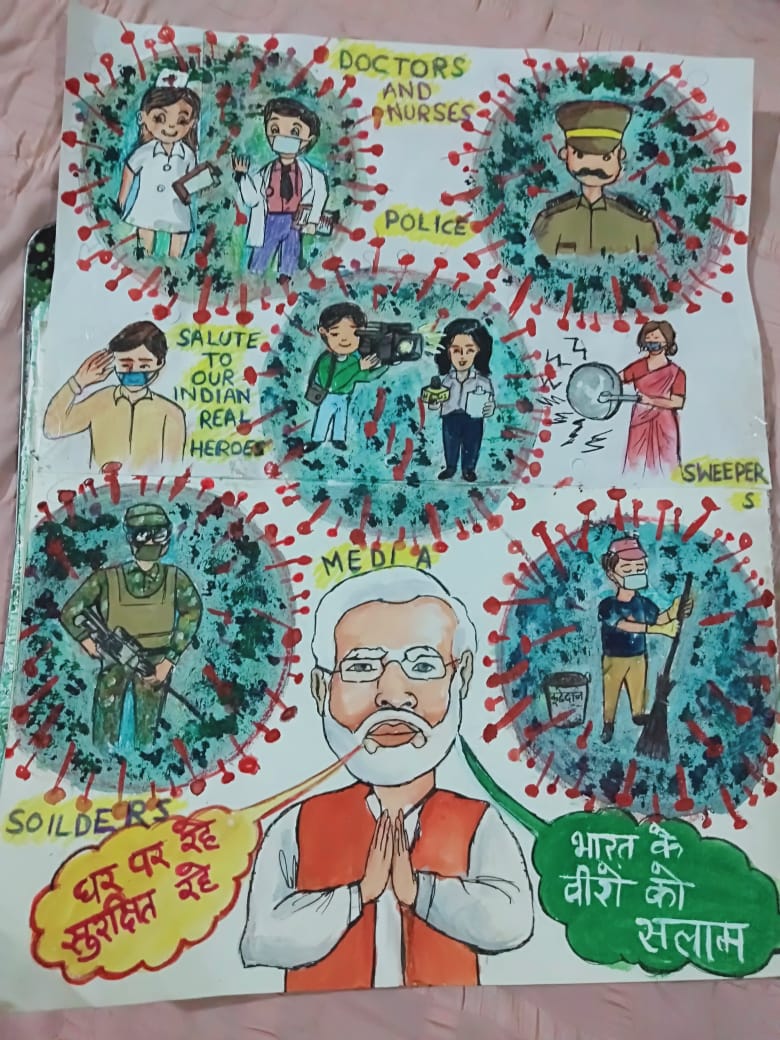 DOCTORS
AND
NURSES
POLICE
SALUTE
TO
OUR
INDIAN
REAL
HEROES
SWEEPER
S
MEDIA
कूडेदान
SOILDERS
घर पर रहे
सुरक्षित रहे
भारत के
वीरो को
सलाम